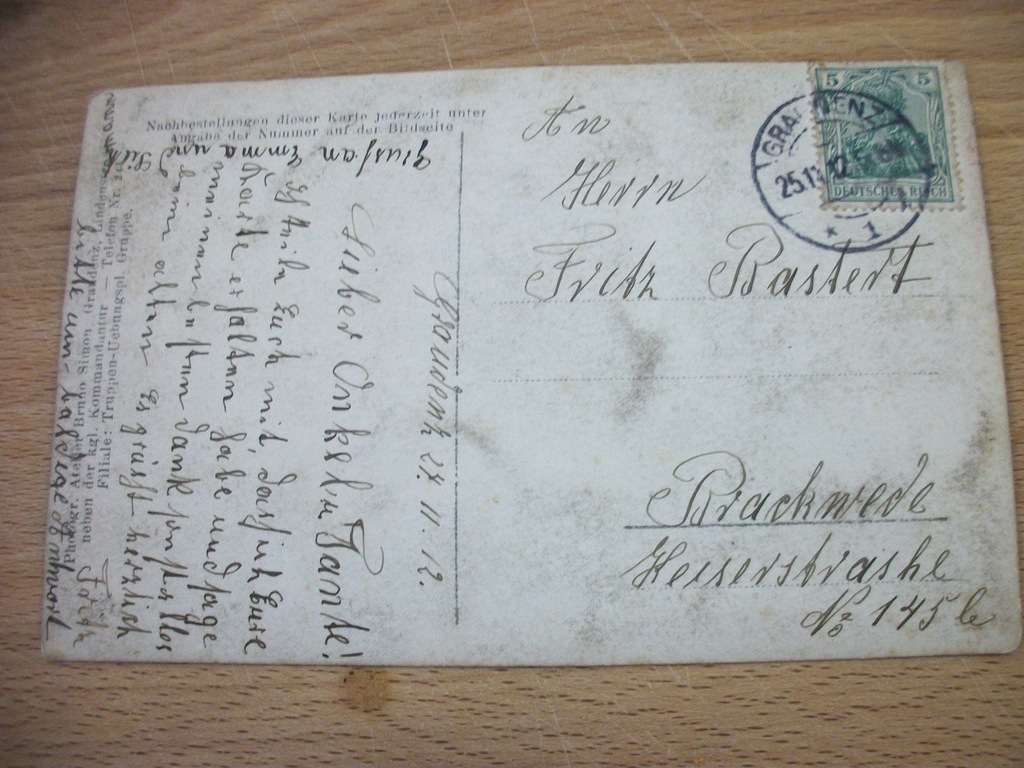 Nachbestellungen dieser Karte jederzeit unter
Angabe der Nummer auf der Bildseite
Photogr. Atelier Bruno Simon, Graudenz, Lindenstr.
neben der kgl. Kommandantur — Telefon Nr.
Filiale: Truppen-Uebungspl. Gruppe.
Graudenz 24. 11. 12.
Lieber Onkel u Tante!
Ich theile Euch mit, das ich Eure
Karte erhalten habe und sage
meinen besten Dank
deinen alten Es grüßt herzlich
bitte um baldige Antwort
Emma und
An
Herrn
Fritz Bastert
Brackwede
Keiserstrashe
No 145 b
GRAUDENZ
25.11.12.
* 1
5 5
DEUTSCHES REICH